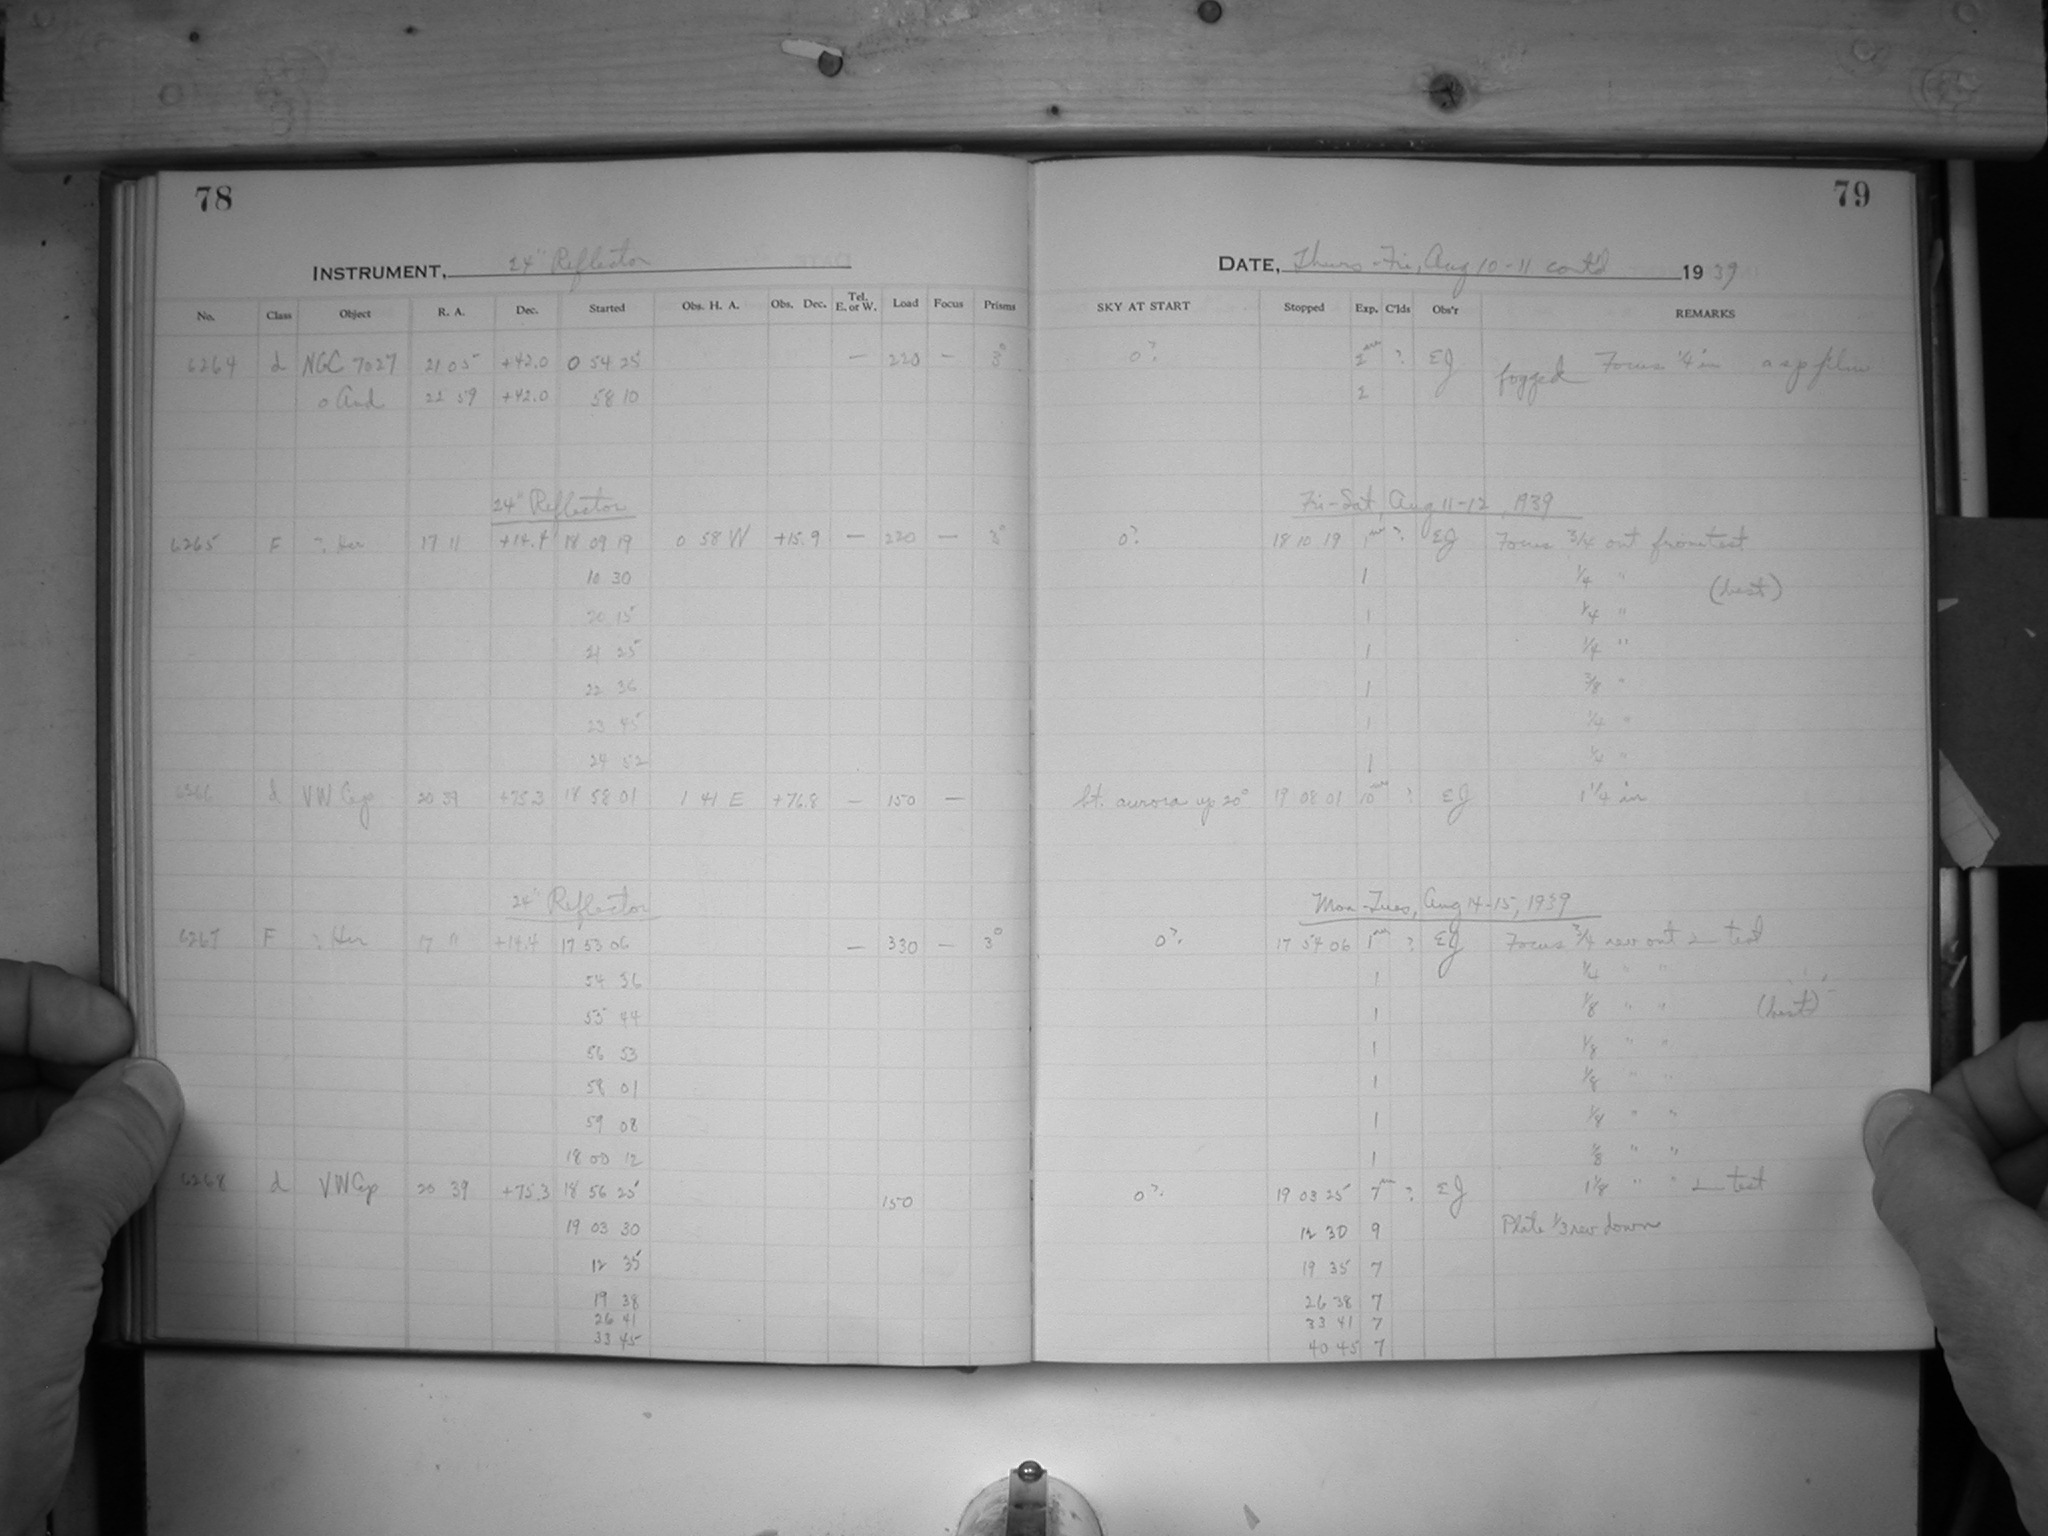 78
INSTRUMENT, 24" Reflector
No. Class Object R. A. Dec. Started Obs. H. A. Obs. Dec. Tel. E. or W. Load Focus Prisms
6264 d NGC 7027 21 05 +42.0 0 54 25 — 220 — 3°
o And 22 59 +42.0 58 10
24" Reflector
6265 F Her 17 11 +14.4 18 09 19 0 58 W +15.9 — 220 — 3°
10 30
20 15
21 25
22 36
23 45
24 52
6266 d VW Cep 20 39 +75.3 18 58 01 1 41 E +76.8 — 150 —
24" Reflector
6267 F Her 17 11 +14.4 17 53 06 — 330 — 3°
54 36
55 44
56 53
58 01
59 08
18 00 12
6268 d VW Cep 20 39 +75.3 18 56 25 150
19 03 30
12 35
19 38
26 41
33 45
79
DATE, Thurs-Fri, Aug 10-11 cont'd 1939
SKY AT START Stopped Exp. C'lds Obs'r REMARKS
0?. 2 ? EJ fogged Focus 1/4 in film
2
Fri-Sat, Aug 11-12, 1939
0?. 18 10 19 1 ? EJ Focus 3/4 out from test
1 1/4 " (best)
1 1/4 "
1 1/4 "
1 3/8 "
1 1/4 "
1 1/4 "
bt. aurora up 20° 19 08 01 10 ? EJ 1 1/4 in
Mon-Tues, Aug 14-15, 1939
0?. 17 54 06 1 ? EJ Focus 3/4 rev out test
1 1/4 " "
1 1/8 " " (best)
1 1/8 " "
1 1/8 " "
1 1/8 " "
1 " "
0?. 19 03 25 7 ? EJ 1 1/8 " " test
12 30 9 Plate 1/3 rev down
19 35 7
26 38 7
33 41 7
40 45 7